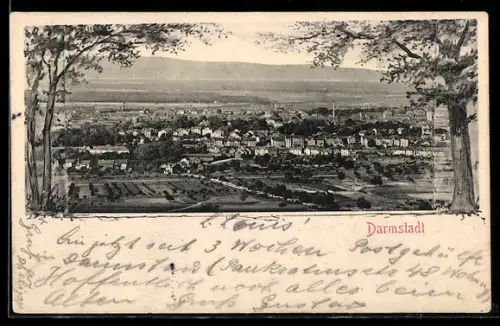 Darmstadt
L. Louis!
bin jetzt seit 3 Wochen Postgehülfe
Darmstadt (Pankratiusstr 48 Wohnung)
Hoffentlich noch alles beim
Alten Gruß Gustav